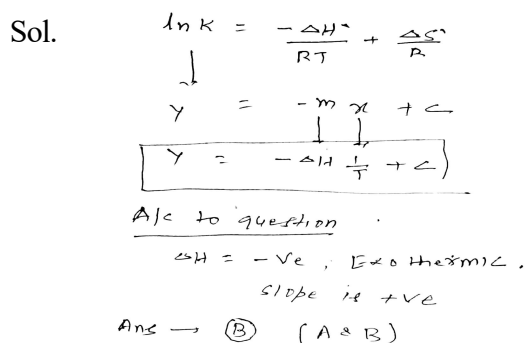 Sol. ln K = -ΔH° / RT + ΔS° / R
↓
Y = - m x + C
Y = - ΔH 1/T + C)
A/c to question .
ΔH = -Ve , Exothermic .
slope is +ve
Ans → Ⓑ (A & B)